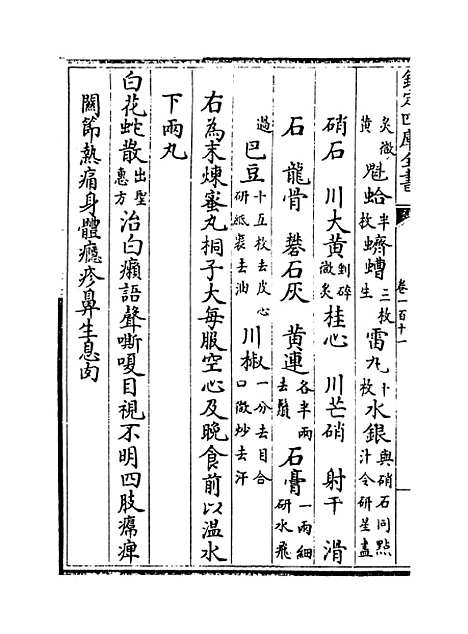 欽定四庫全書
卷一百十一
炙微黃 魁蛤半枚 蠐螬三枚生 雷丸十枚 水銀與硝石同㸃汁令研星盡
硝石 川大黃剉碎微炙 桂心 川芒硝 射干 滑
石 龍骨 礬石灰 黃連各半兩去鬚 石膏一兩細研水飛
過 巴豆十五枚去皮心研紙裹去油 川椒一分去目合口微炒去汗
右為末煉蜜丸桐子大每服空心及晚食前以温水
下兩丸
白花蛇散出聖惠方 治白癩語聲嘶嗄目視不明四肢㿏痺
關節熱痛身體癮疹鼻生息肉